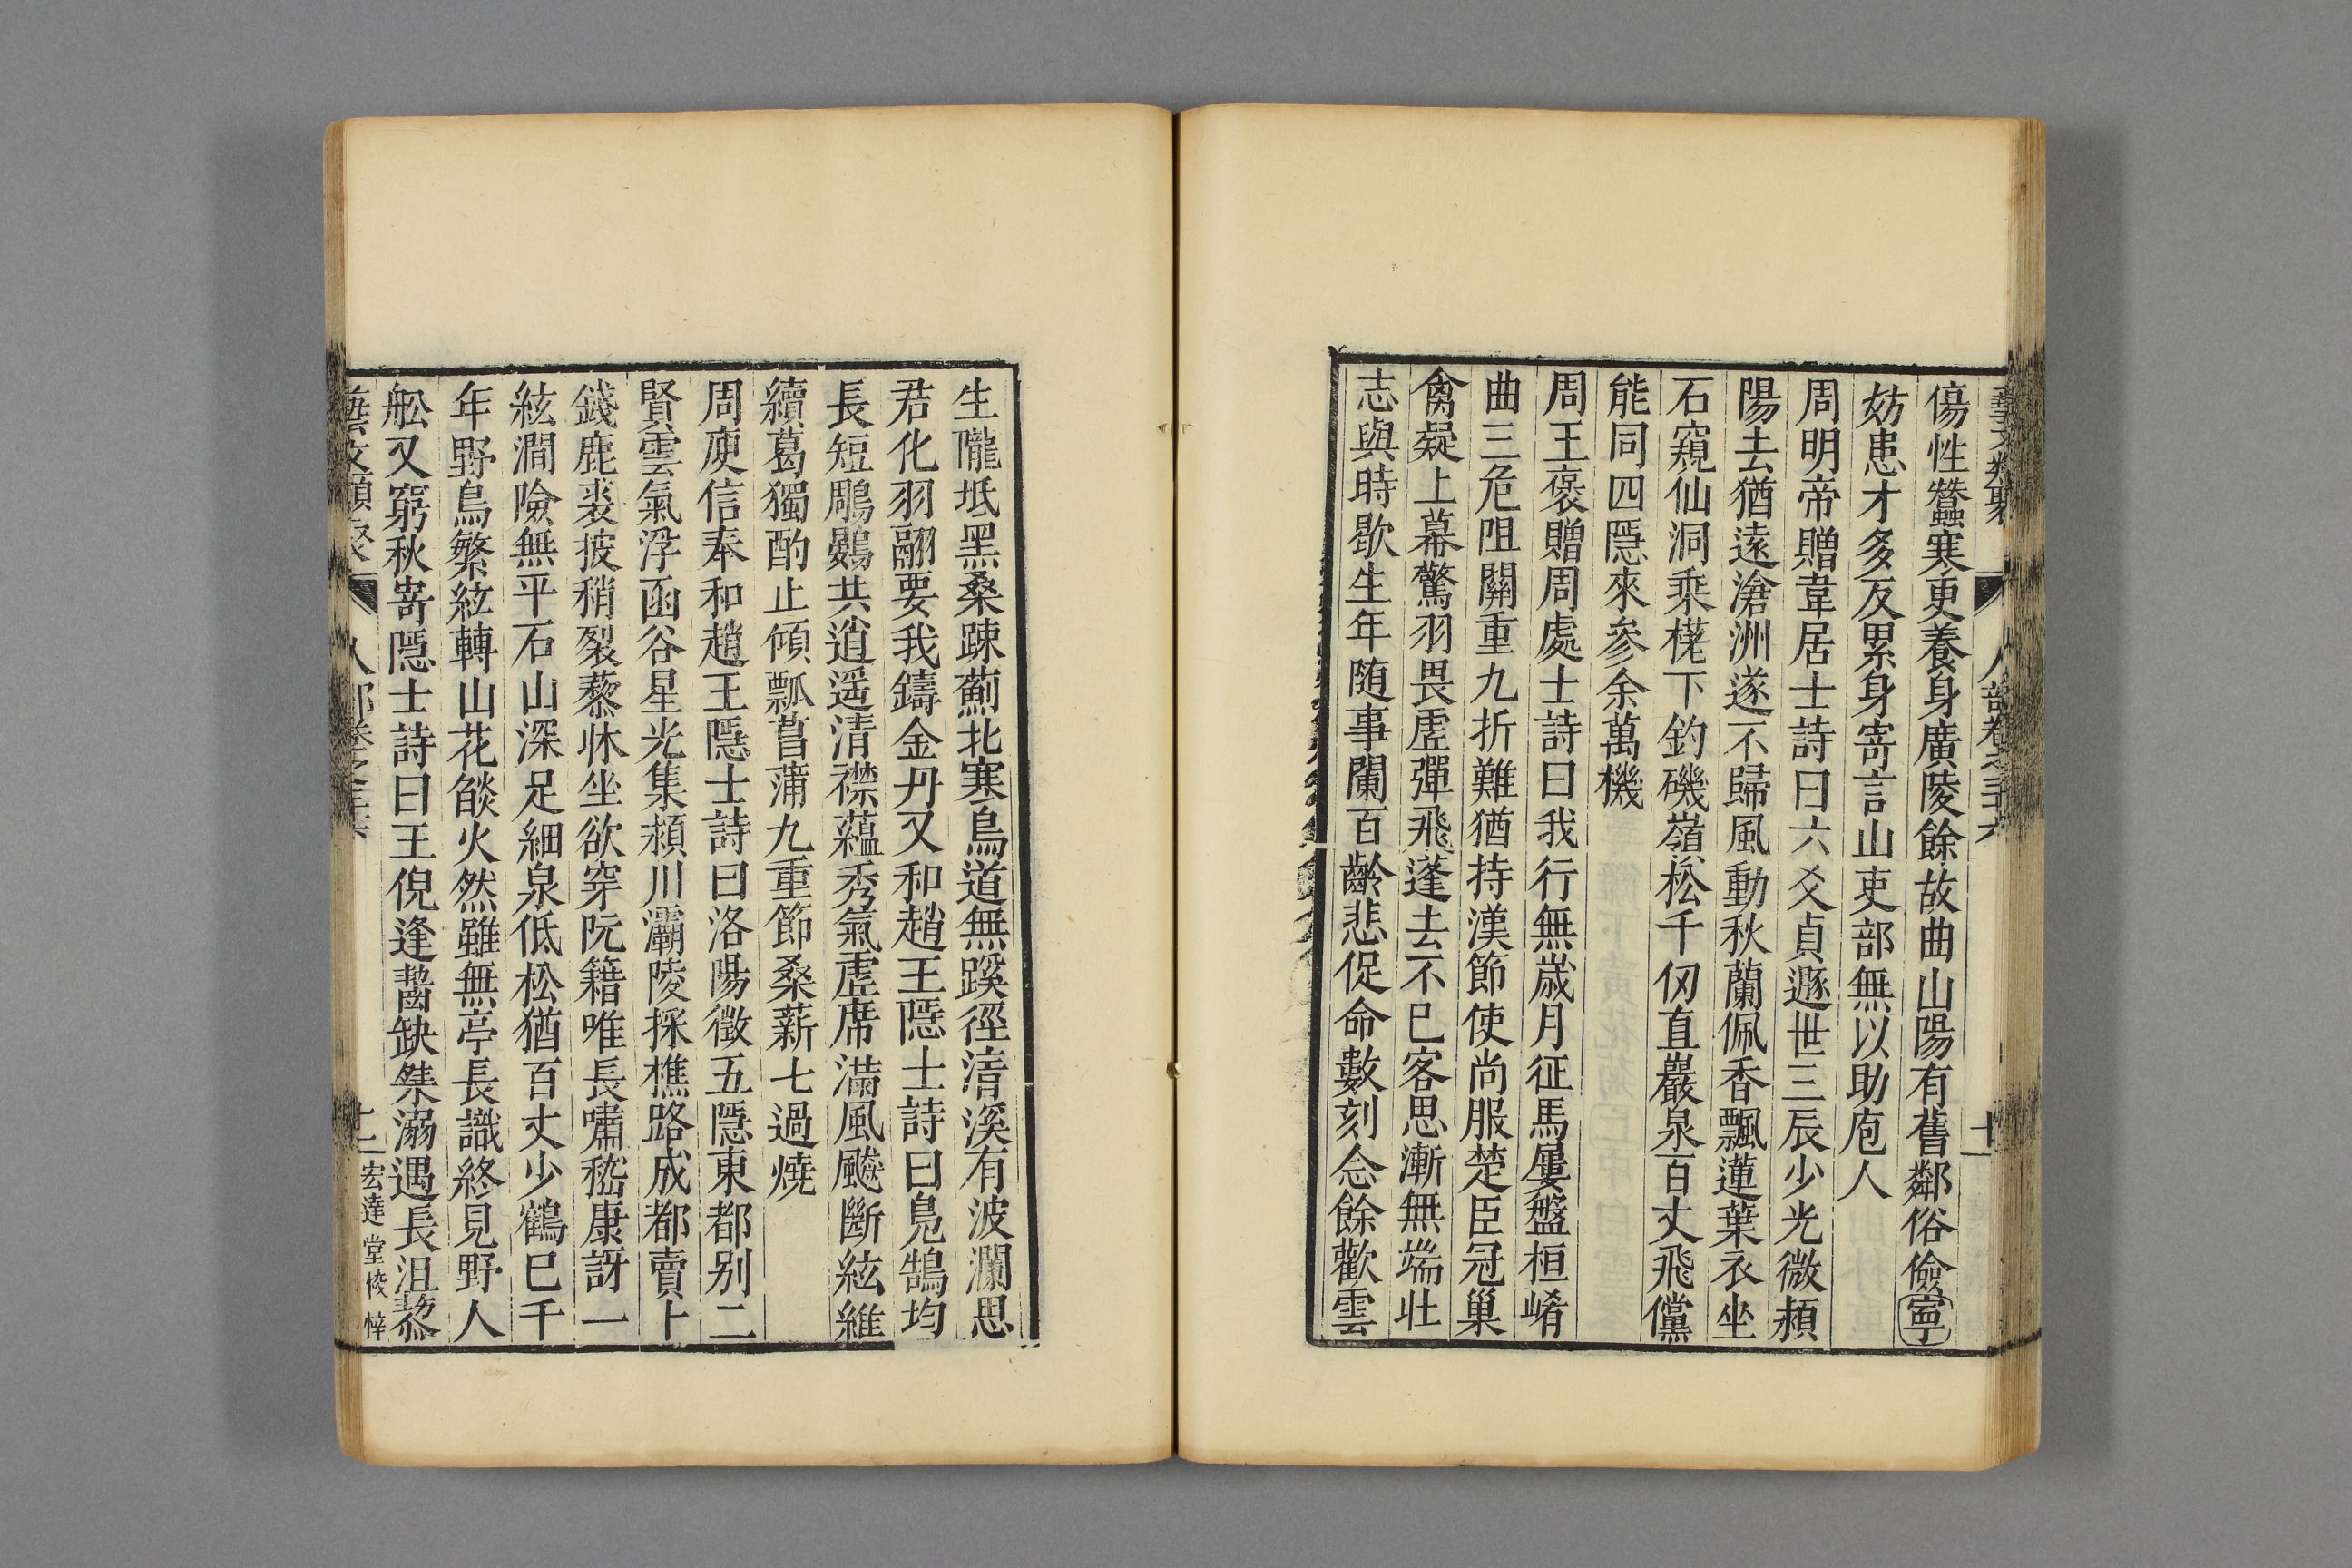 藝文類聚 人部卷之三十六 十一
傷性蠶寒更養身廣陵餘故曲山陽有舊鄰俗儉寧
妨患才多反累身寄言山吏部無以助庖人
周明帝贈韋居士詩曰六爻貞遯世三辰少光微頴
陽去猶遠滄洲遂不歸風動秋蘭佩香飄蓮葉衣坐
石窺仙洞乘槎下釣磯嶺松千仞直巖泉百丈飛儻
能同四隱來參余萬機
周王褒贈周處士詩曰我行無歲月征馬屢盤桓崤
曲三危阻關重九折難猶持漢節使尚服楚臣冠巢
禽疑上幕驚羽畏虛彈飛蓬去不已客思漸無端壯
志與時歇生年随事闌百齡悲促命數刻念餘歡雲
生隴坻黑桑踈薊北寒鳥道無蹊徑清溪有波瀾思
君化羽翮要我鑄金丹又和趙王隱士詩曰鳧鵠均
長短鵰鷃共逍遥清襟蘊秀氣虛席滿風飈斷絃維
續葛獨酌止傾瓢菖蒲九重節桑薪七過燒
周庾信奉和趙王隱士詩曰洛陽徵五隱東都别二
賢雲氣浮函谷星光集頴川灞陵採樵路成都賣卜
錢鹿裘披稍裂藜牀坐欲穿阮籍唯長嘯嵇康訝一
絃澗險無平石山深足細泉低松猶百丈少鶴巳千
年野鳥繁絃轉山花㷔火然雖無亭長識終見野人
舩又窮秋寄隱士詩曰王倪逢齧缺桀溺遇長沮藜
藝文類聚 人部卷之三十六 十二 宏達堂校梓